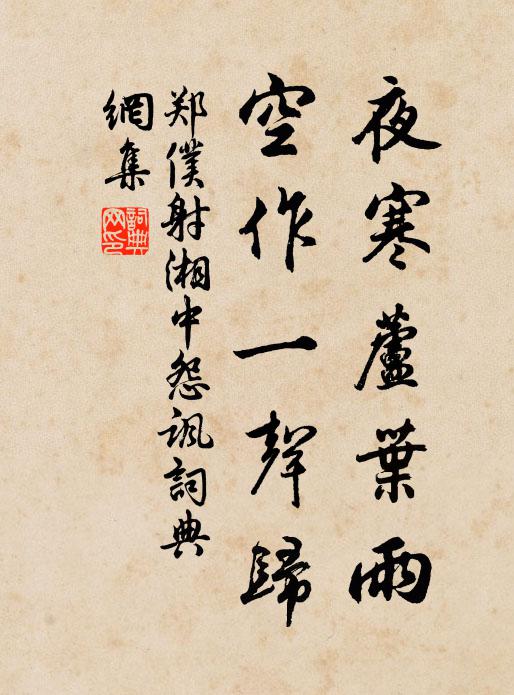 夜寒蘆葉雨
空作一聲歸
郑僕射湘中怨讽詞典
網集
詞典網印